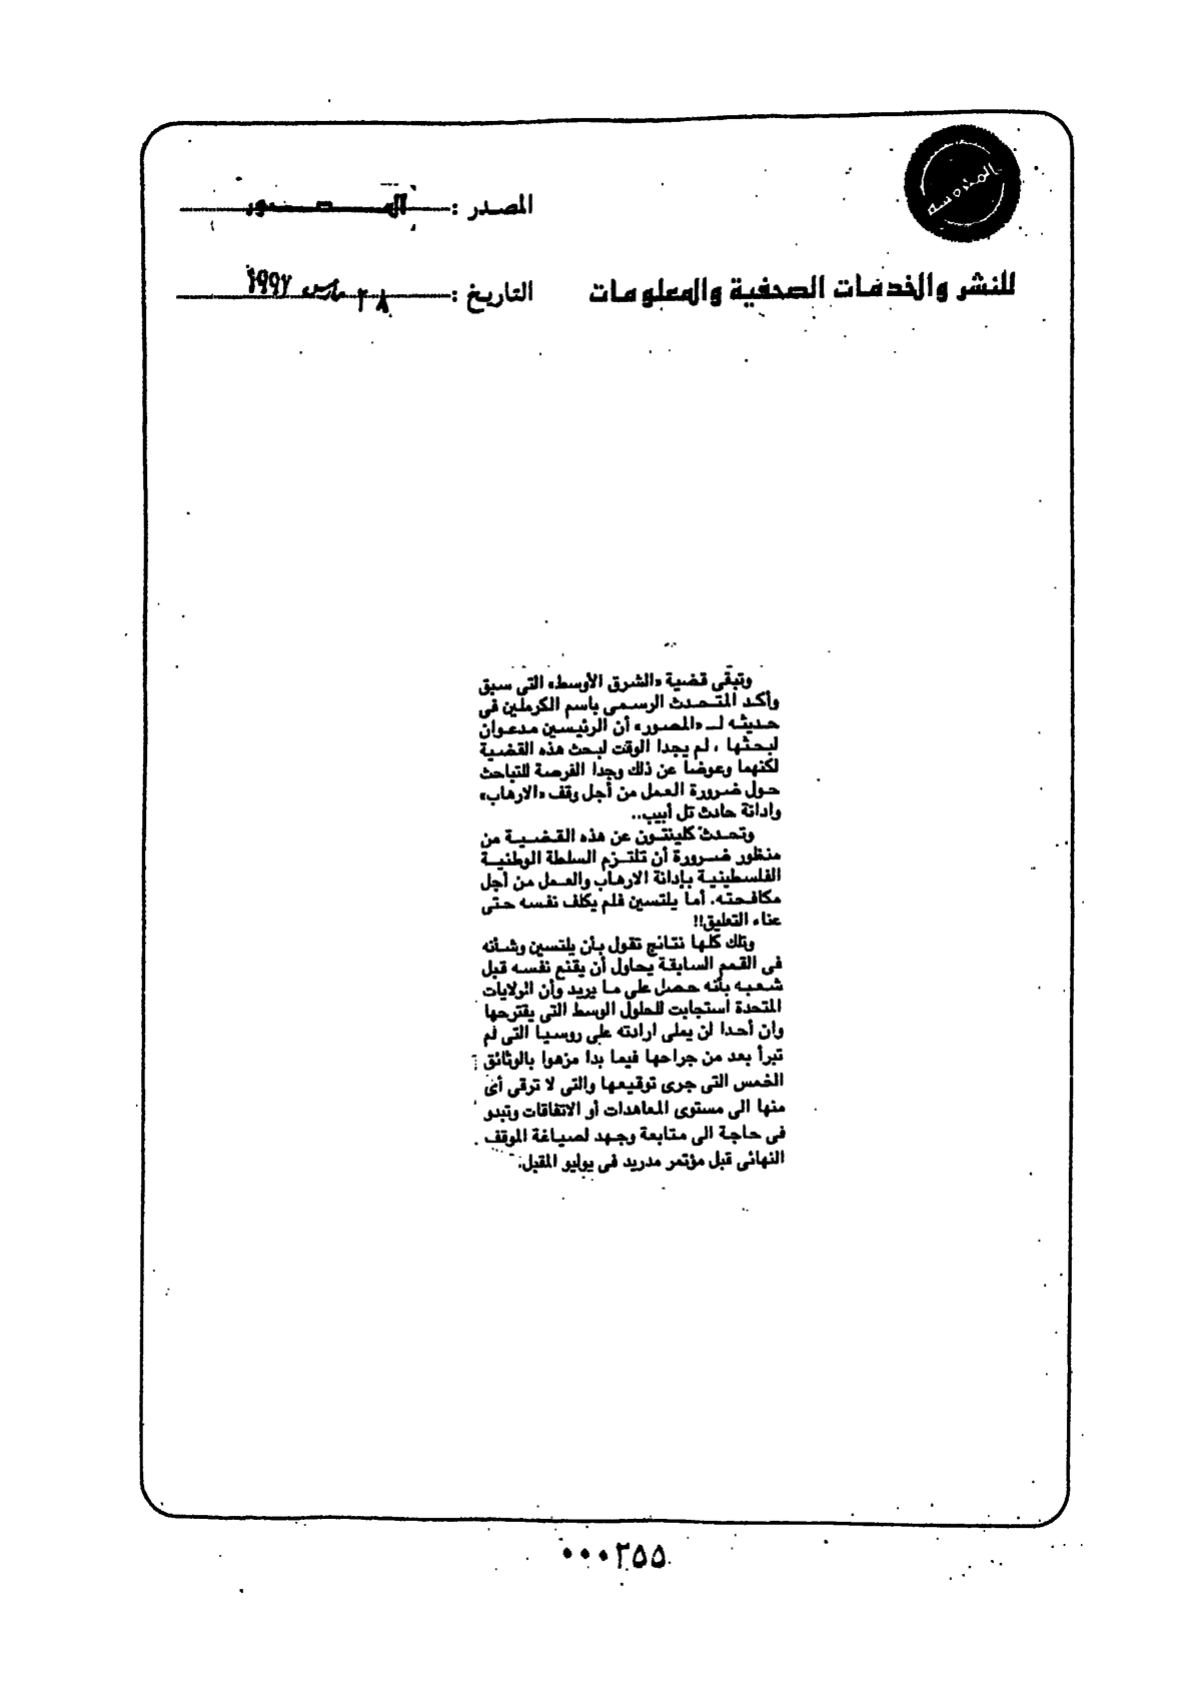 المدمسه
المصدر : المصور
للنشر والخدمات الصحفية والمعلومات
التاريخ : ٢٨ مارس ١٩٩٧
وتبقى قضية «الشرق الأوسط» التى سبق
وأكد المتحدث الرسمى باسم الكرملين فى
حديثه لـ «المصور» أن الرئيسين مدعوان
لبحثها ، لم يجدا الوقت لبحث هذه القضية
لكنهما وعوضا عن ذلك وجدا الفرصة للتباحث
حول ضرورة العمل من أجل وقف «الارهاب»
وادانة حادث تل أبيب..
وتحدث كلينتون عن هذه القضية من
منظور ضرورة أن تلتزم السلطة الوطنية
الفلسطينية بإدانة الارهاب والعمل من أجل
مكافحته. أما يلتسين فلم يكلف نفسه حتى
عناء التعليق!!
وتلك كلها نتائج تقول بأن يلتسين وشأنه
فى القمم السابقة يحاول أن يقنع نفسه قبل
شعبه بأنه حصل على ما يريد وأن الولايات
المتحدة استجابت للحلول الوسط التى يقترحها
وان أحدا لن يملى ارادته على روسيا التى لم
تبرأ بعد من جراحها فيما بدا مزهوا بالوثائق
الخمس التى جرى توقيعها والتى لا ترقى أى
منها الى مستوى المعاهدات أو الاتفاقات وتبدو
فى حاجة الى متابعة وجهد لصياغة الموقف
النهائى قبل مؤتمر مدريد فى يوليو المقبل.
٠٠٠٢٥٥